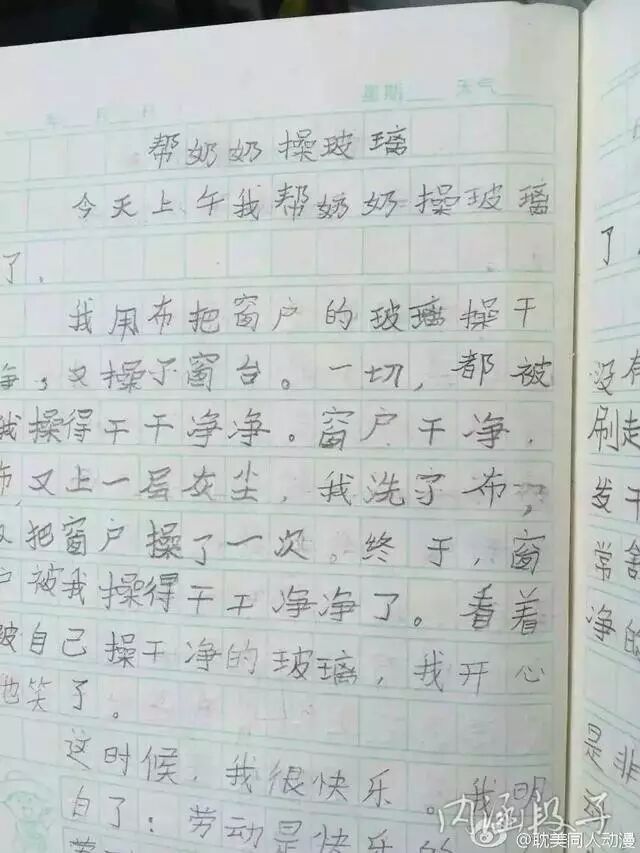 星期 天气
帮奶奶操玻璃
今天上午我帮奶奶操玻璃
了.
我用布把窗户的玻璃操干
净,又操了窗台。一切,都被
我操得干干净净。窗户干净,
布,又上一层灰尘,我洗了布,
又把窗户操了一次。终于,窗
户被我操得干干净净了。看着
被自己操干净的玻璃,我开心
地笑了。
这时候,我很快乐。我明
白了:劳动是快乐的
了,
没有
刷走
发干
常舍
净的
是非
内涵段子
@耽美同人动漫